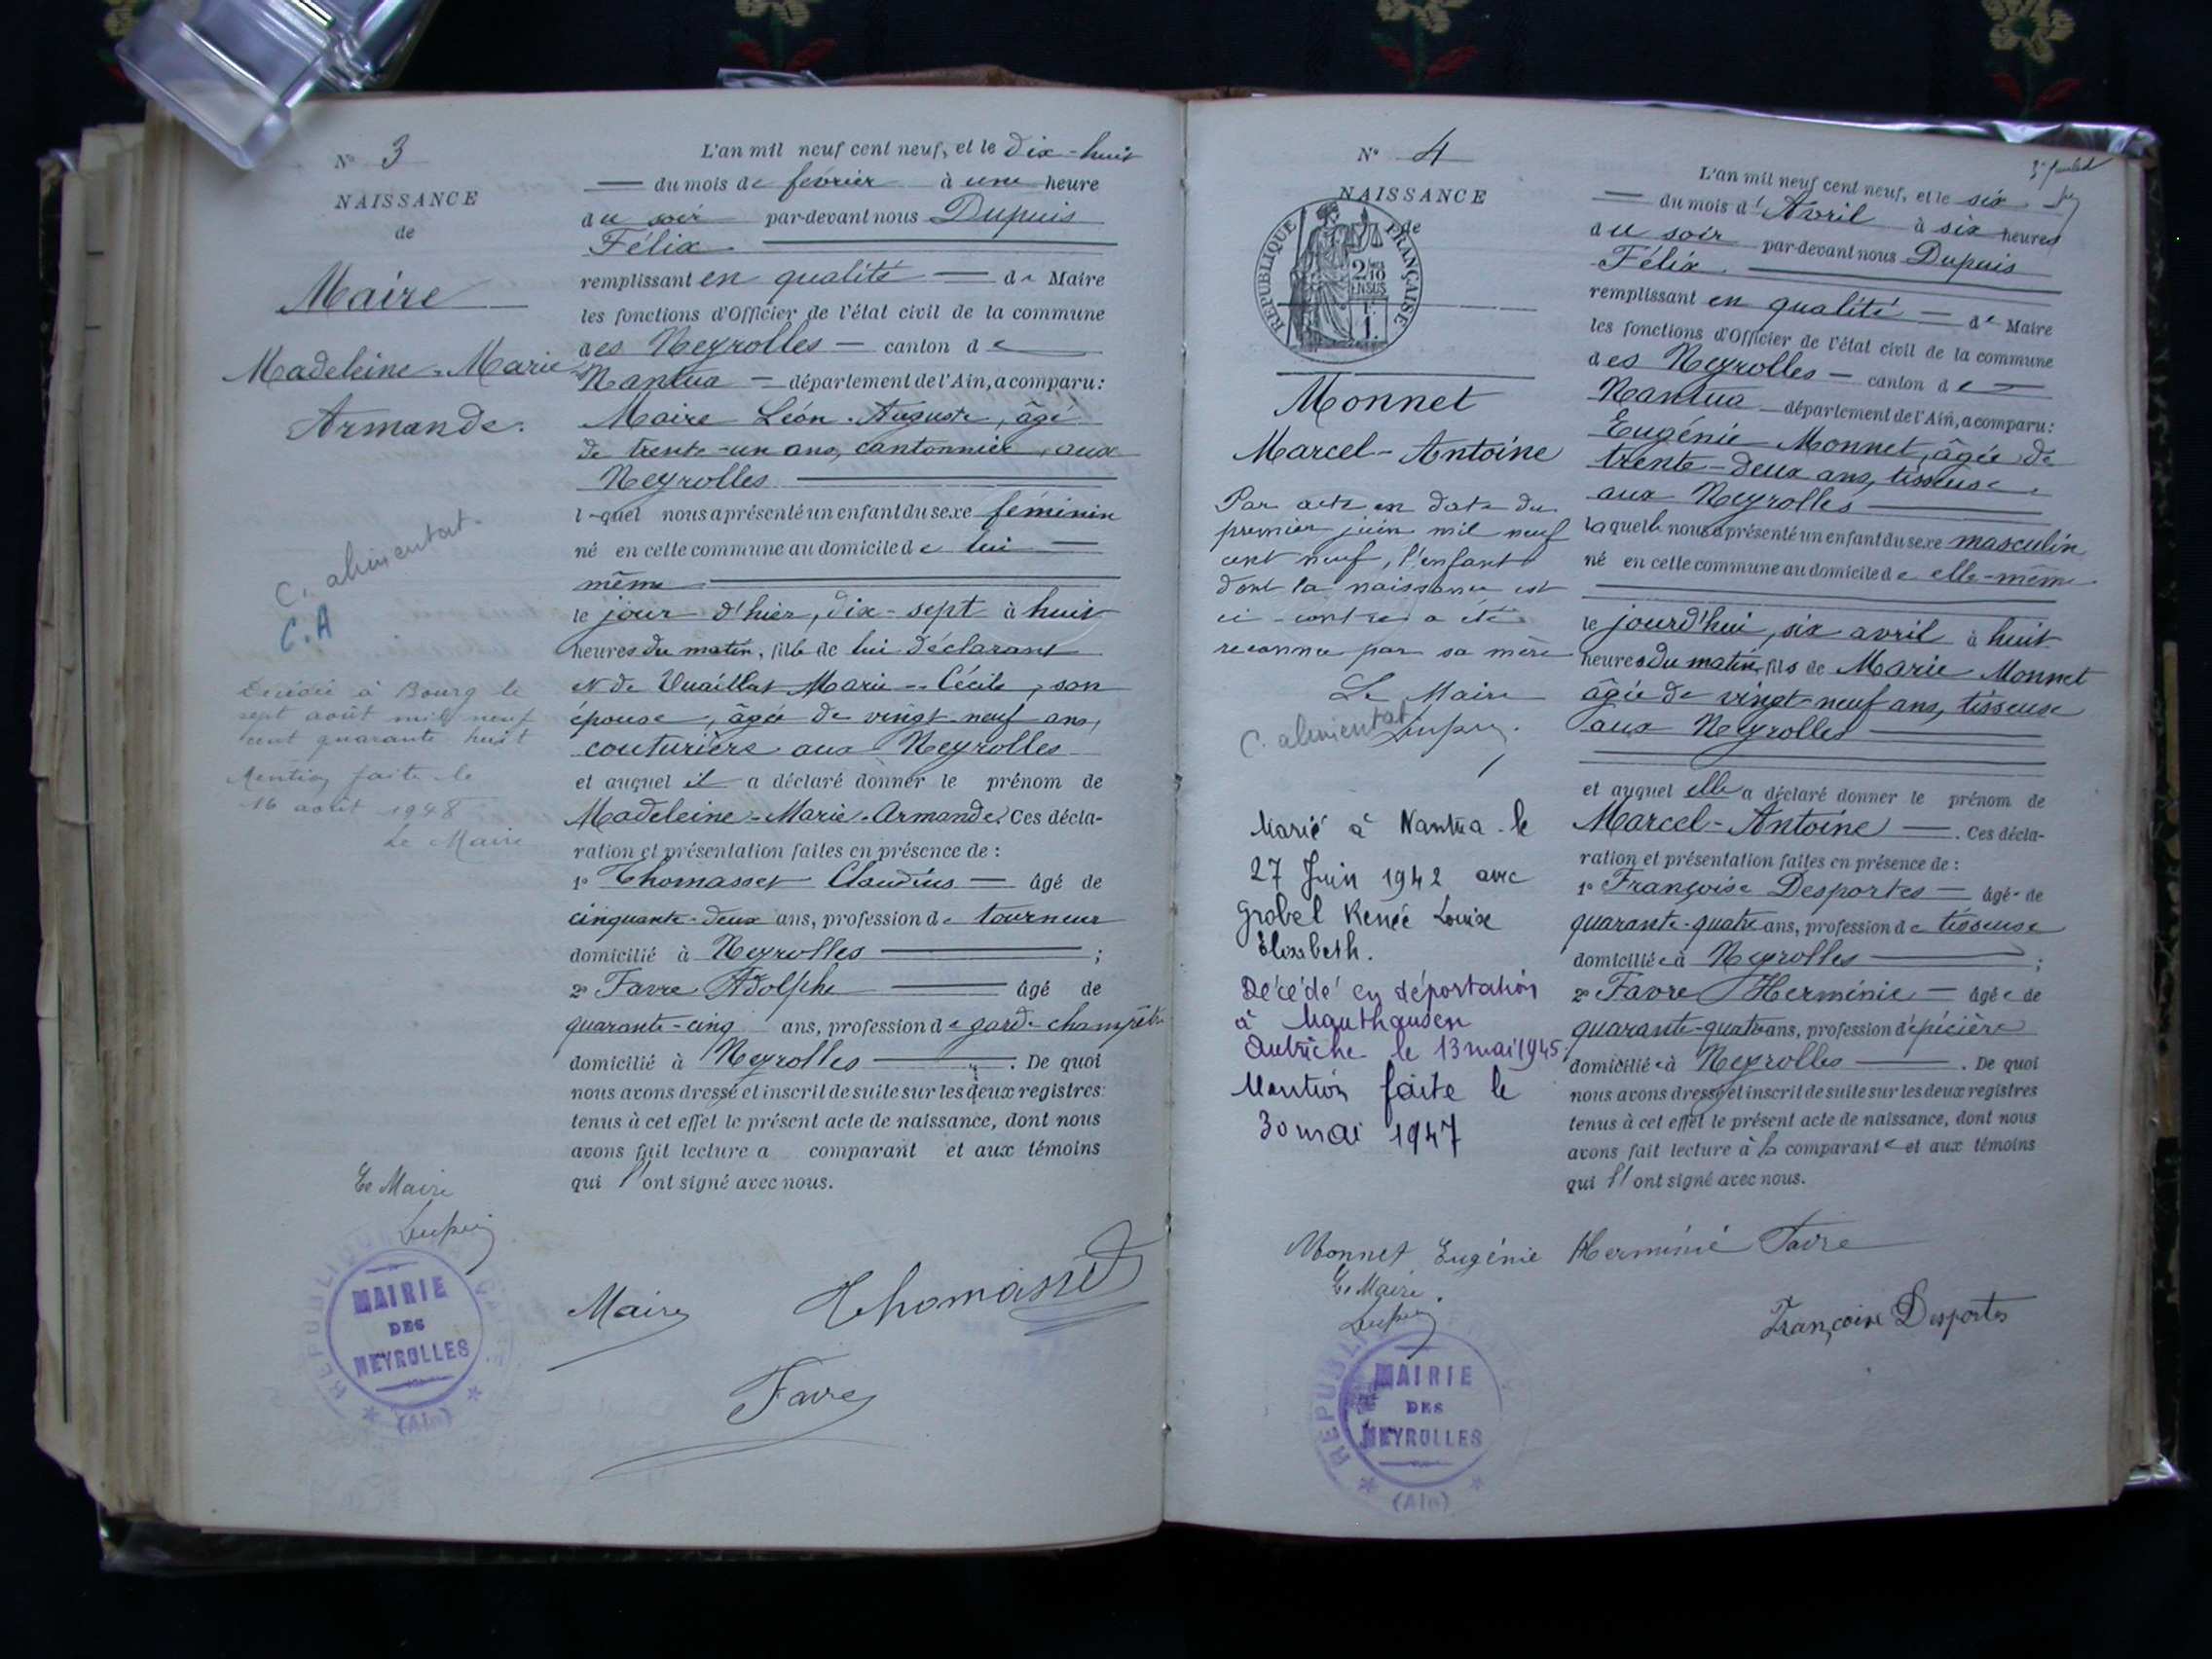 N° 3
NAISSANCE
de
Maire
Madeleine-Marie
Armande.
C. alimentat.
C.A
Décédée à Bourg le
sept août mil neuf
cent quarante huit
Mention faite le
16 août 1948
Le Maire
Le Maire
Dupuis
REPUBLIQUE FRANÇAISE
MAIRIE
DES
NEYROLLES
(Ain)
L'an mil neuf cent neuf, et le dix-huit
— du mois de février à une heure
du soir par-devant nous Dupuis
Félix
remplissant en qualité — de Maire
les fonctions d'Officier de l'état civil de la commune
des Neyrolles — canton de
Nantua — département de l'Ain, a comparu:
Maire Léon-Auguste, âgé
de trente-un ans, cantonnier, aux
Neyrolles
lequel nous a présenté un enfant du sexe féminin
né en cette commune au domicile de lui
même
le jour d'hier, dix-sept à huit
heures du matin, fille de lui déclarant
et de Vuaillat Marie-Cécile, son
épouse, âgée de vingt-neuf ans,
couturière aux Neyrolles
et auquel il a déclaré donner le prénom de
Madeleine-Marie-Armande. Ces décla-
ration et présentation faites en présence de :
1° Thomasset Claudius — âgé de
cinquante-deux ans, profession de tourneur
domicilié à Neyrolles ;
2° Favre Adolphe — âgé de
quarante-cinq ans, profession de garde-champêtre
domicilié à Neyrolles . De quoi
nous avons dressé et inscrit de suite sur les deux registres
tenus à cet effet le présent acte de naissance, dont nous
avons fait lecture a comparant et aux témoins
qui l'ont signé avec nous.
Maire Thomasset
Favre
N° 4
NAISSANCE
de
REPUBLIQUE FRANÇAISE
2/10
EN SUS
Monnet
Marcel-Antoine
Par acte en date du
premier juin mil neuf
cent neuf, l'enfant
dont la naissance est
ci-contre a été
reconnu par sa mère
Le Maire
Dupuis.
C. alimentat.
Marié à Nantua le
27 Juin 1942 avec
Grobel Renée Louise
Élisabeth.
Décédé en déportation
à Mauthausen
Autriche le 13 mai 1945
Mention faite le
30 mai 1947
L'an mil neuf cent neuf, et le six
— du mois d'Avril à six heures
du soir par-devant nous Dupuis
Félix
remplissant en qualité — de Maire
les fonctions d'Officier de l'état civil de la commune
des Neyrolles — canton de —
Nantua — département de l'Ain, a comparu:
Eugénie Monnet, âgée de
trente-deux ans, tisseuse
aux Neyrolles
laquelle nous a présenté un enfant du sexe masculin
né en cette commune au domicile de elle-même
le jourd'hui, six avril à huit
heures du matin, fils de Marie Monnet
âgée de vingt-neuf ans, tisseuse
aux Neyrolles
et auquel elle a déclaré donner le prénom de
Marcel-Antoine — . Ces décla-
ration et présentation faites en présence de :
1° Françoise Desportes — âgée de
quarante-quatre ans, profession de tisseuse
domiciliée à Neyrolles ;
2° Favre Herminie — âgée de
quarante-quatre ans, profession d'épicière
domiciliée à Neyrolles . De quoi
nous avons dressé et inscrit de suite sur les deux registres
tenus à cet effet le présent acte de naissance, dont nous
avons fait lecture à la comparante et aux témoins
qui l'ont signé avec nous.
Monnet Eugénie Herminie Favre
Le Maire.
Dupuis
Françoise Desportes
REPUBLI
MAIRIE
DES
NEYROLLES
(Ain)